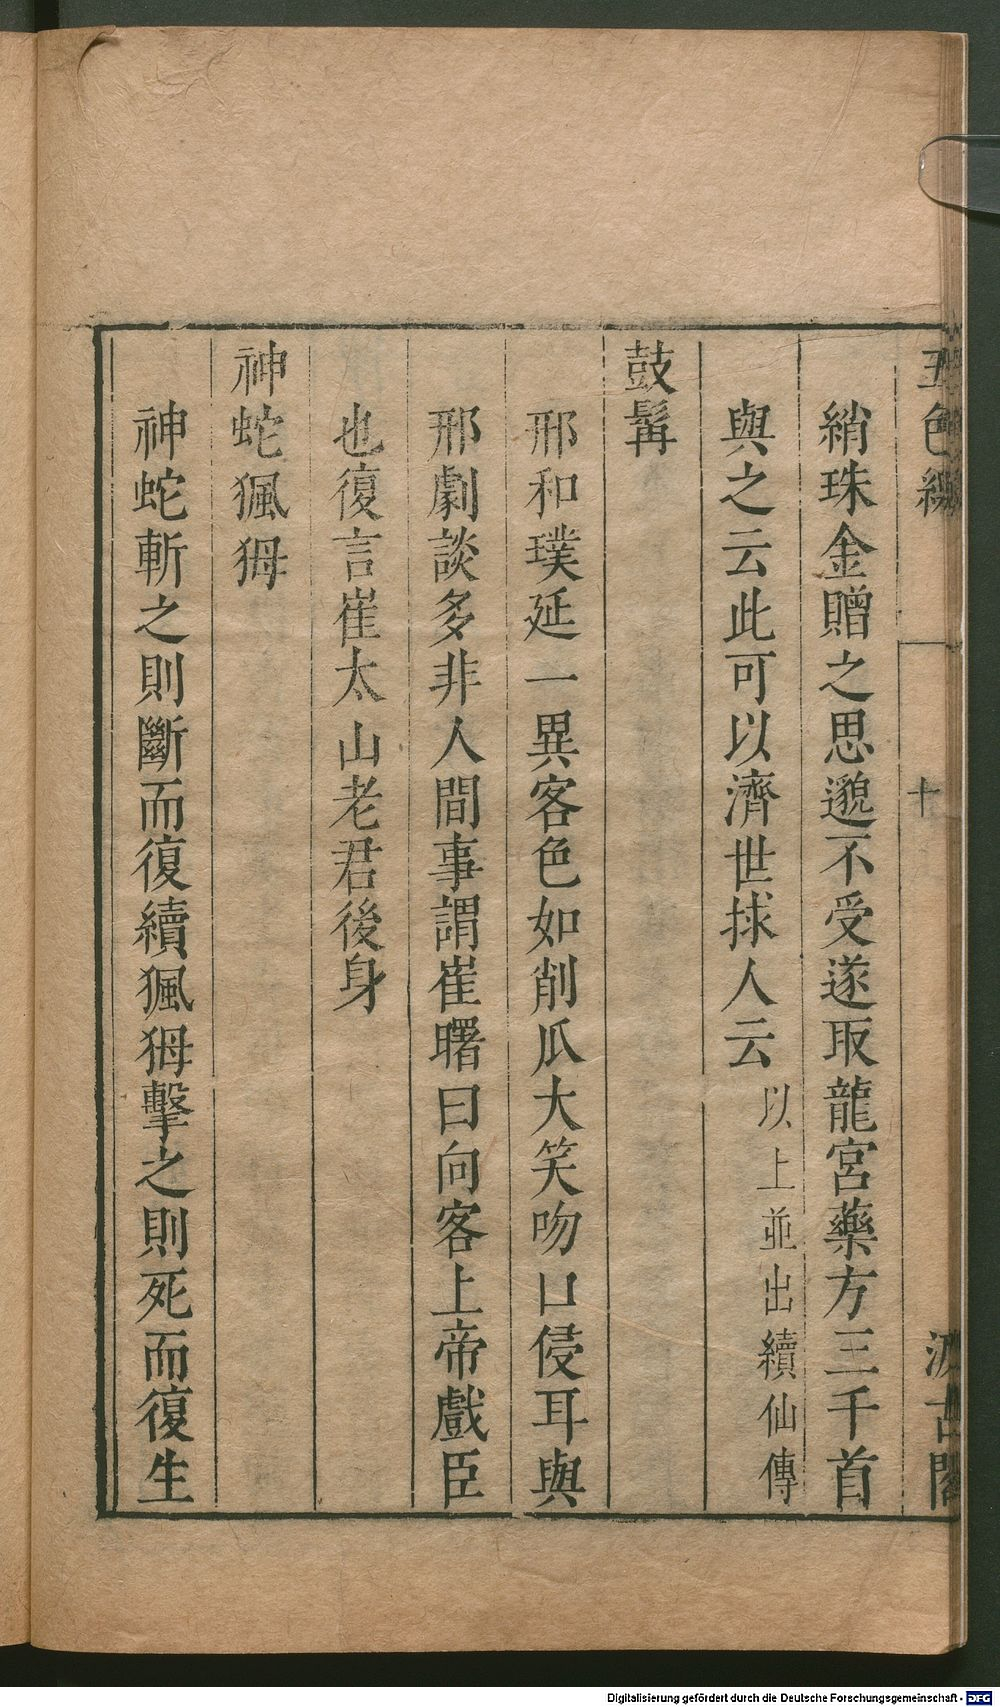 五色線 十 汲古閣
綃珠金贈之思邈不受遂取龍宮藥方三千首
與之云此可以濟世捄人云 以上並出續仙傳
鼓髯
邢和璞延一異客色如削瓜大笑吻口侵耳與
邢劇談多非人間事謂崔曙曰向客上帝戲臣
也復言崔太山老君後身
神蛇猦㹱
神蛇斬之則斷而復續猦㹱擊之則死而復生
Digitalisierung gefördert durch die Deutsche Forschungsgemeinschaft - DFG